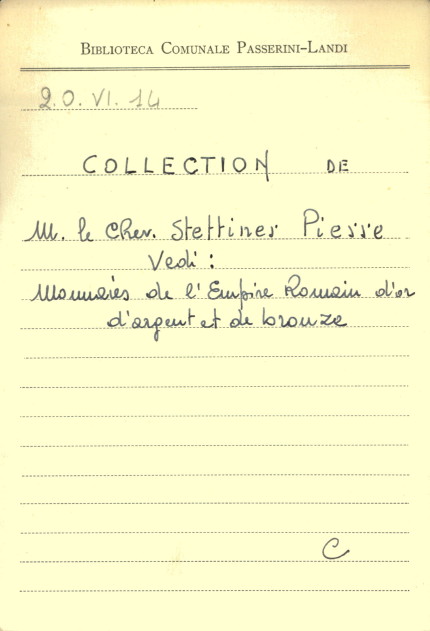 BIBLIOTECA COMUNALE PASSERINI-LANDI
2.O.VI.14
COLLECTION DE
M. le Chev. Stettiner Piesse
Vedi :
Monnaies de l'Empire Romain d'or
d'argent et de bronze
C